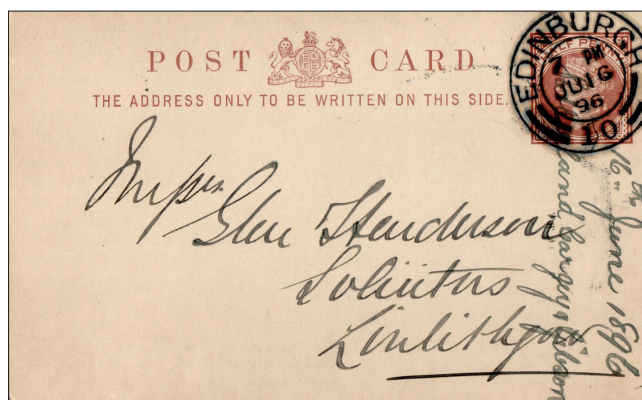 POST CARD
THE ADDRESS ONLY TO BE WRITTEN ON THIS SIDE.
EDINBURGH
7 PM
JU 16
96
10
HALF PENNY
Messrs
Glen Henderson
Solicitors
Linlithgow
16th June 1896
and